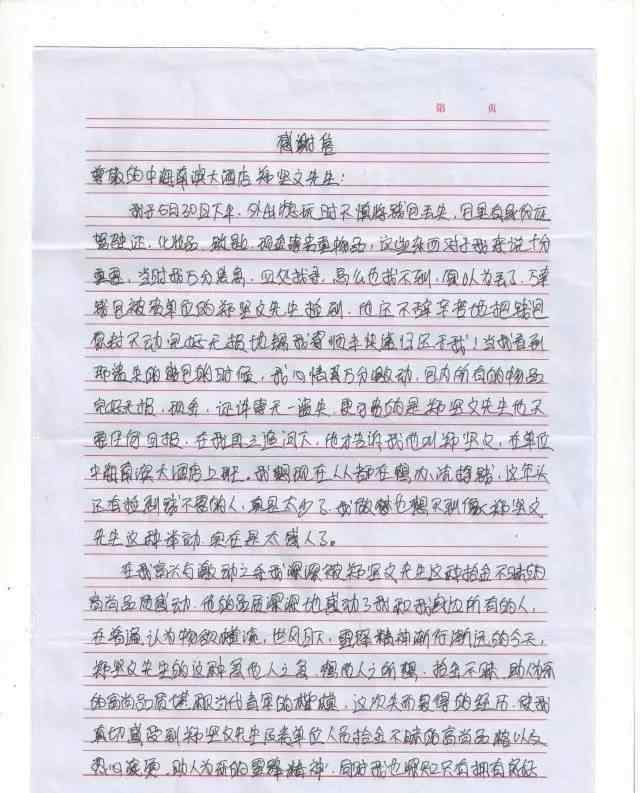 第 页
感谢信
尊敬的中海南滨大酒店郑坚文先生:
我于5月30日下午,外出游玩时不慎将钱包丢失,包里有身份证
驾驶证、化妆品、钥匙、现金等贵重物品,这些东西对于我来说十分
重要,当时我万分焦急,四处找寻,怎么也找不到,原以为丢了,
钱包被贵单位的郑坚文先生捡到,他还不辞辛苦地把钱包
原封不动完好无损地给我寄顺丰快递归还于我!当我看到
那丢失的钱包的时候,我心情万分激动,包内所有的物品
完好无损,现金、证件等无一遗失,更可贵的是郑坚文先生也不
要任何回报,在我再三追问下,他才告诉我他叫郑坚文,在单位
中海南滨大酒店上班。我想现在人人都在想办法挣钱,这年头
还有捡到钱不要的人,真是太少了,我做梦也想不到像郑坚文
先生这种举动,实在是太感人了。
在我高兴与激动之余我深深被郑坚文先生这种拾金不昧的
高尚品质感动,他的品质深深地感动了我和我身边所有的人,
在普遍认为物欲横流,世风日下,雷锋精神渐行渐远的今天,
郑坚文先生的这种急他人之急,想他人之所想,拾金不昧,助人为乐
的高尚品质堪称当代青年的楷模,这次失而复得的经历,使我
真切感受到郑坚文先生及贵单位人员拾金不昧的高尚品格以及
热心,助人为乐的雷锋精神,同时我也明知只有拥有